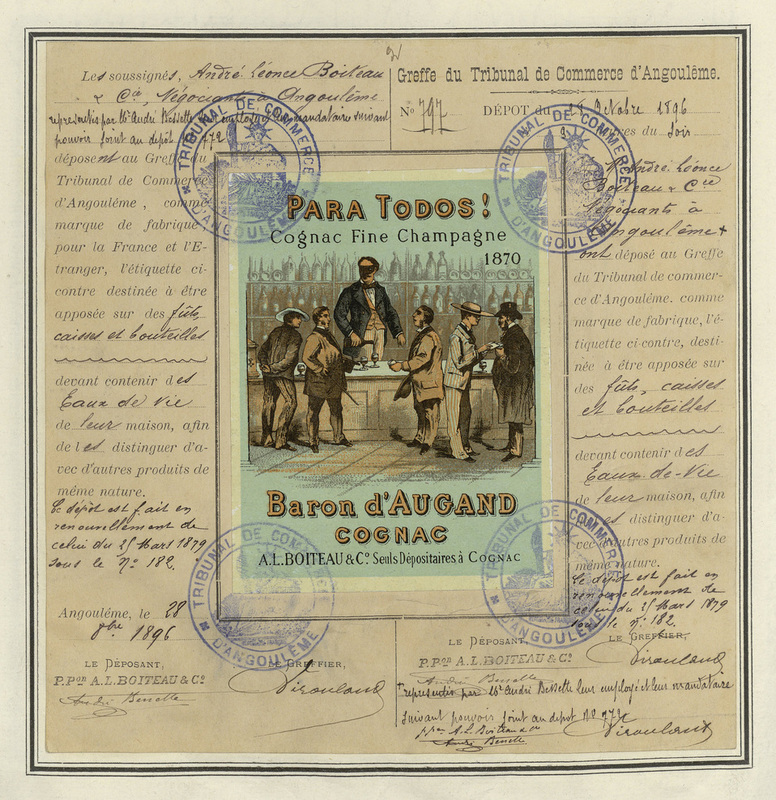 Les soussignés, André Léonce Boiteau
& Cie, Négociants à Angoulême
représentés par Mr André Bessette leur employé et mandataire suivant
pouvoir joint au dépôt 772
déposent au Greffe du
Tribunal de Commerce
d'Angoulême, comme
marque de fabrique
pour la France et l'E-
tranger, l'étiquette ci-
contre destinée à être
apposée sur des fûts,
caisses et bouteilles
devant contenir des
Eaux de vie
de leur maison, afin
de les distinguer d'a-
vec d'autres produits de
même nature.
Ce dépôt est fait en
renouvellement de
celui du 25 Mars 1879
sous le No 182.
Angoulême, le 28
8bre 1896
LE DÉPOSANT,
P.Pon A.L.BOITEAU & Co
André Bessette
LE GREFFIER,
PARA TODOS!
Cognac Fine Champagne
1870
Baron d'AUGAND
COGNAC
A.L.BOITEAU & Co Seuls Dépositaires à COGNAC
Greffe du Tribunal de Commerce d'Angoulême.
No 797
DÉPOT du 28 Octobre 1896
heures du Soir
Mr André Léonce
Boiteau & Cie
Négociants à
Angoulême
ont déposé au Greffe
du Tribunal de commer-
ce d'Angoulême. comme
marque de fabrique, l'é-
tiquette ci-contre, desti-
née à être apposée sur
des fûts, caisses
et bouteilles
devant contenir des
Eaux-de-Vie
de leur maison, afin
de les distinguer d'a-
vec d'autres produits de
même nature.
Ce dépôt est fait en
renouvellement de
celui du 25 Mars 1879
sous le No. 182.
LE DÉPOSANT,
P.Pon A.L.BOITEAU & Co
André Bessette
LE GREFFIER,
représentés par Mr André Bessette leur employé et leur mandataire
suivant pouvoir joint au dépôt No 772
ppon A.L. Boiteau & Co
André Bessette
TRIBUNAL DE COMMERCE
D'ANGOULÊME
TRIBUNAL DE COMMERCE
D'ANGOULÊME
TRIBUNAL DE COMMERCE
D'ANGOULÊME
TRIBUNAL DE COMMERCE
D'ANGOULÊME